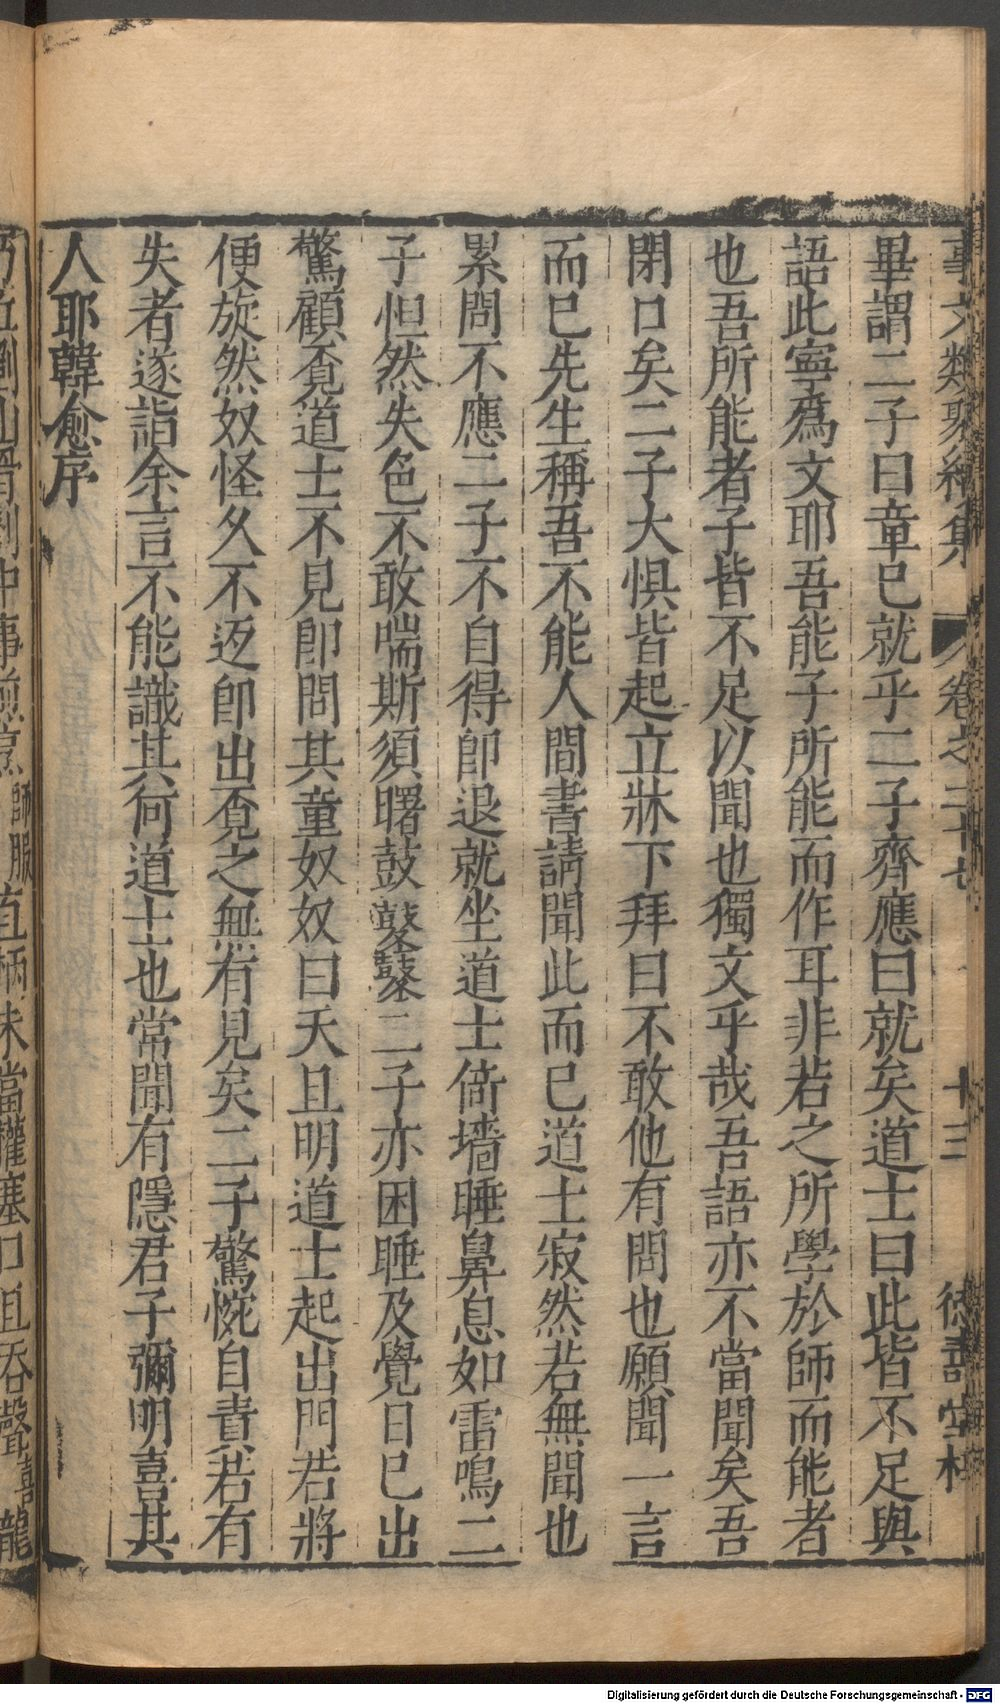 事文類聚續集 卷之二十七 十三 德壽堂梓
畢謂二子曰章已就乎二子齊應曰就矣道士曰此皆不足與
語此寧爲文耶吾能子所能而作耳非若之所學於師而能者
也吾所能者子皆不足以聞也獨文乎哉吾語亦不當聞矣吾
閉口矣二子大惧皆起立牀下拜曰不敢他有問也願聞一言
而已先生稱吾不能人間書請聞此而已道士寂然若無聞也
累問不應二子不自得卽退就坐道士倚墻睡鼻息如雷鳴二
子怛然失色不敢喘斯須曙鼓鼕鼕二子亦困睡及覺日已出
驚顧覔道士不見卽問其童奴奴曰天且明道士起出門若將
便旋然奴怪久不返卽出覔之無有見矣二子驚惋自責若有
失者遂詣余言不能識其何道士也常聞有隱君子彌明喜其
人耶韓愈序
直柄未當權塞口且吞聲喜龍
Digitalisierung gefördert durch die Deutsche Forschungsgemeinschaft - DFG